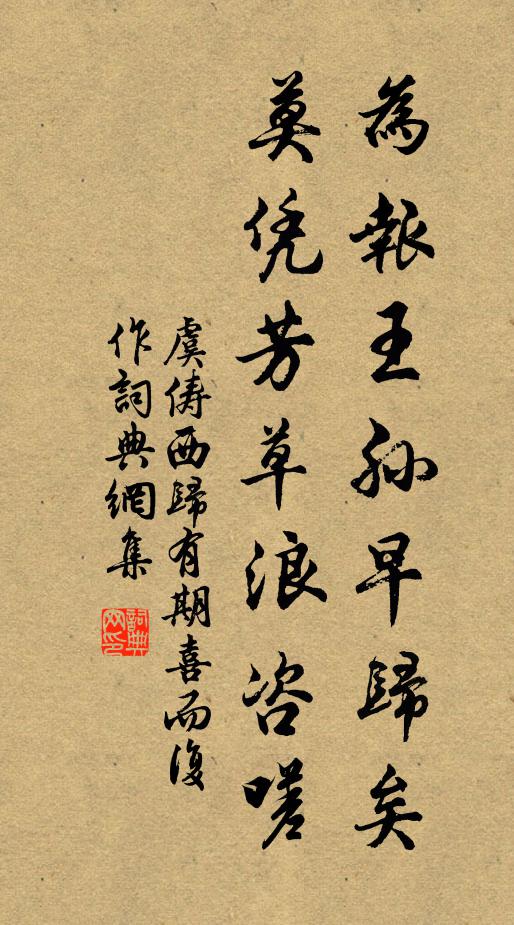 為報王孫早歸矣
莫凭芳草浪咨嗟
虞儔西歸有期喜而復
作詞典網集
詞典网印